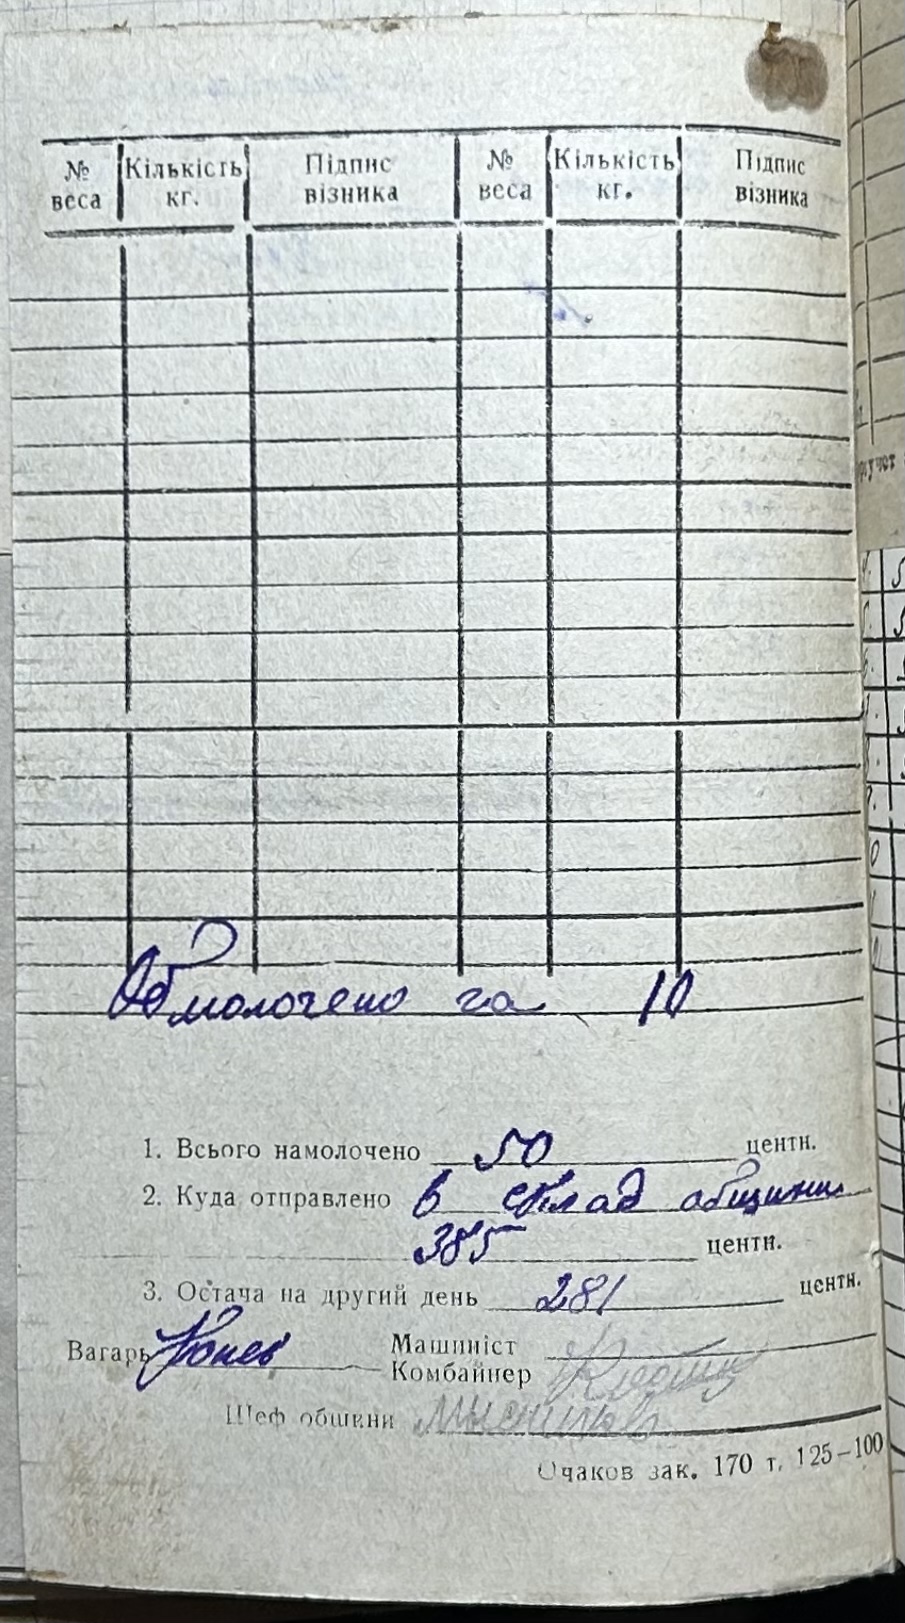 № веса Кількість кг. Підпис візника № веса Кількість кг. Підпис візника
Обмолочено га 10
1. Всього намолочено 50 центн.
2. Куда отправлено в склад общини
385 центн.
3. Остача на другий день 281 центн.
Вагарь Машиніст
Комбайнер
Шеф общени
Очаков зак. 170 т. 125—100